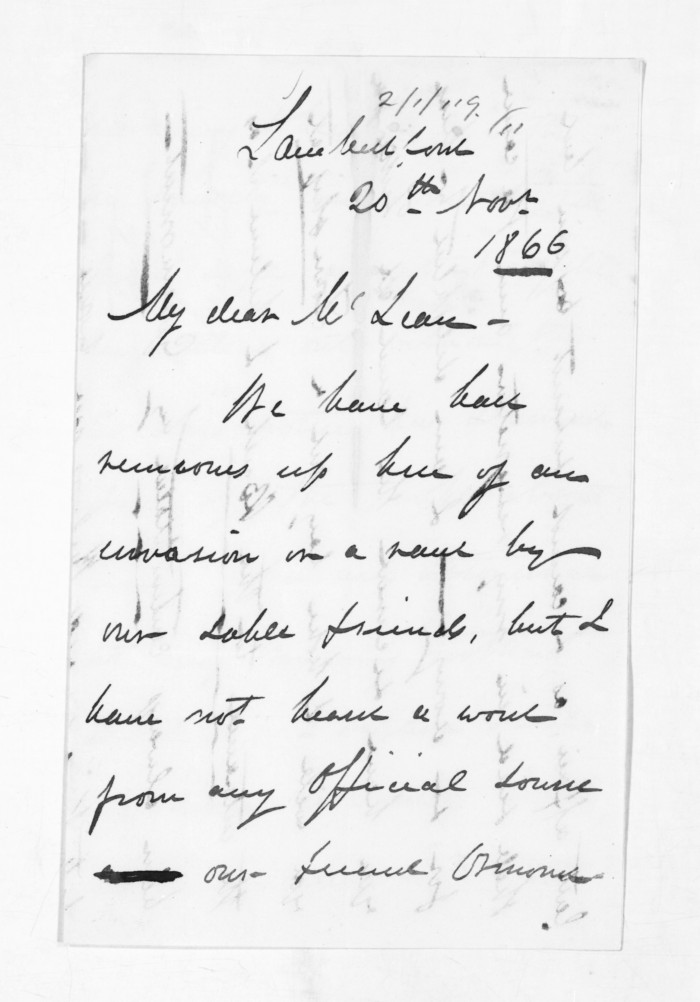 2/1/119.
/11
Lambertford
20th Novr
1866
My dear McLean -
We have had
rumours up here of an
invasion or a raid by
our sable friends, but I
have not heard a word
from any Official source
our friend Ormond